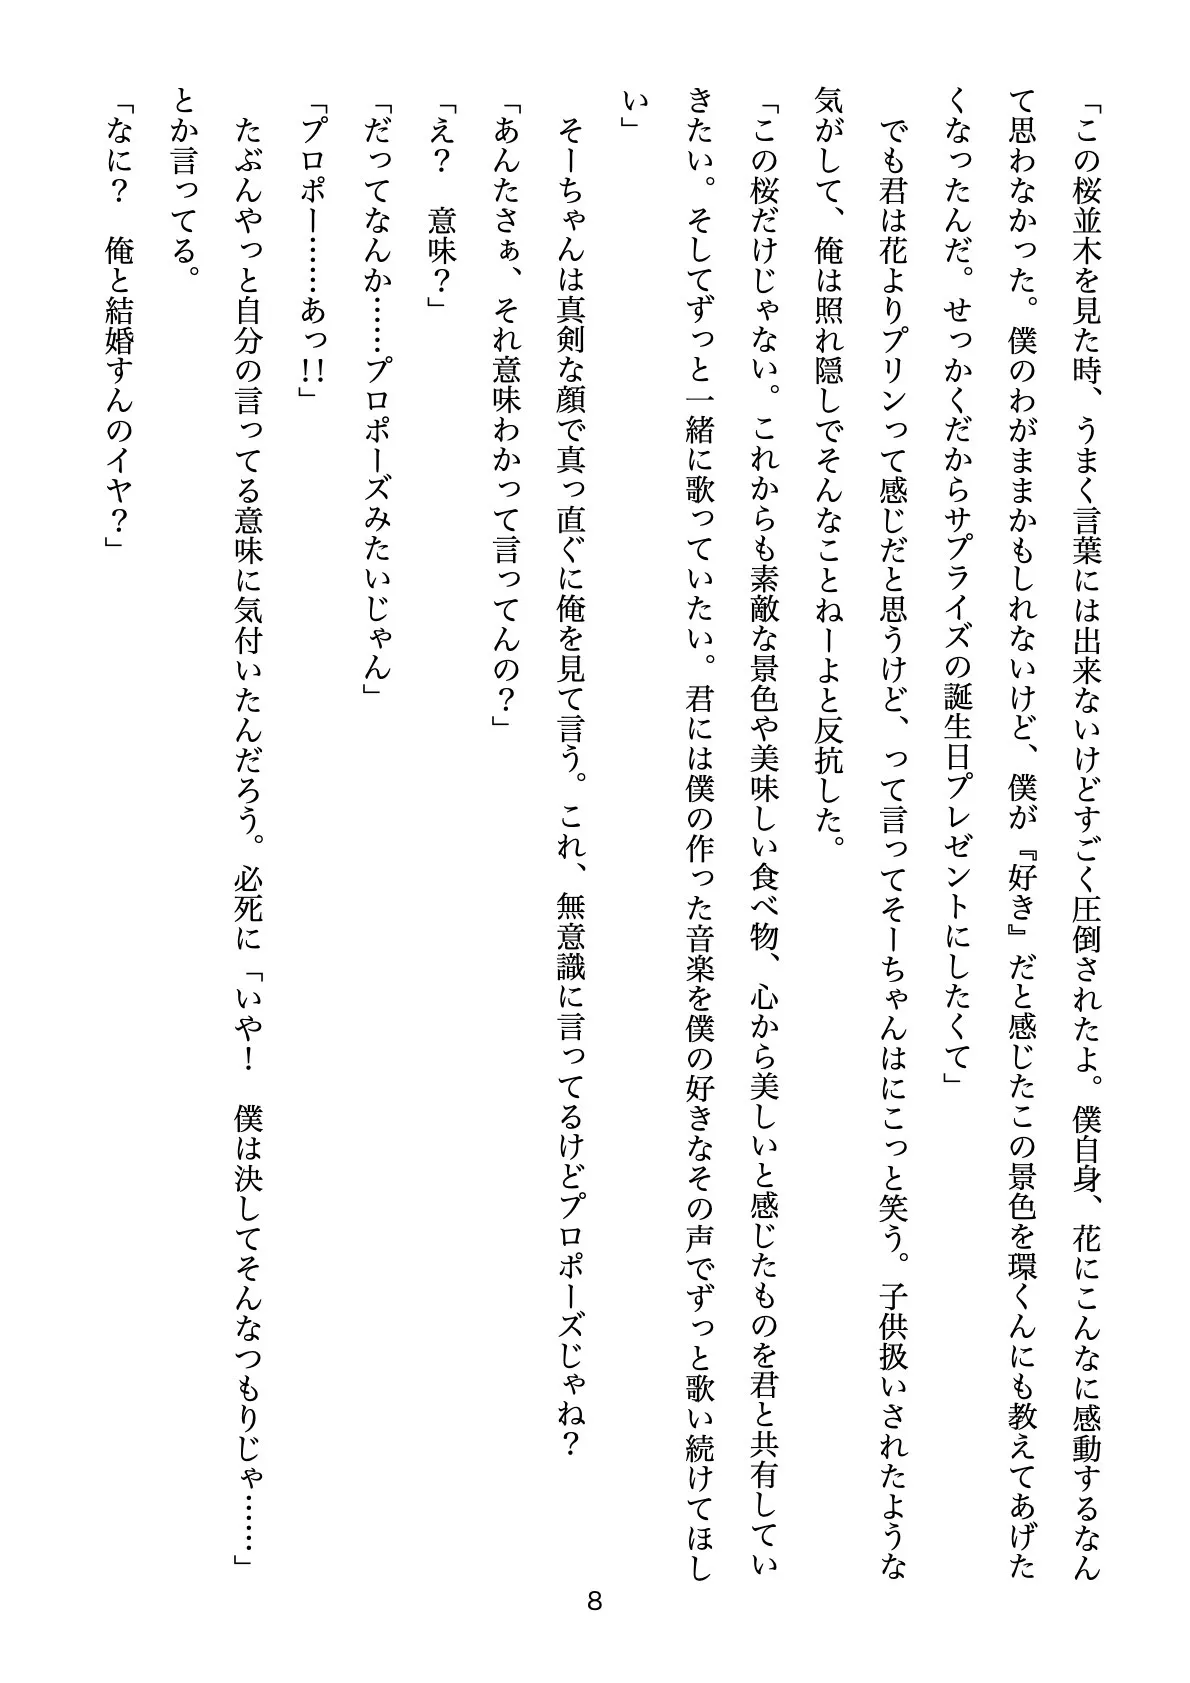 「この桜並木を見た時、うまく言葉には出来ないけどすごく圧倒されたよ。僕自身、花にこんなに感動するなん
て思わなかった。僕のわがままかもしれないけど、僕が『好き』だと感じたこの景色を環くんにも教えてあげた
くなったんだ。せっかくだからサプライズの誕生日プレゼントにしたくて」
　でも君は花よりプリンって感じだと思うけど、って言ってそーちゃんはにこっと笑う。子供扱いされたような
気がして、俺は照れ隠しでそんなことねーよと反抗した。
「この桜だけじゃない。これからも素敵な景色や美味しい食べ物、心から美しいと感じたものを君と共有してい
きたい。そしてずっと一緒に歌っていたい。君には僕の作った音楽を僕の好きなその声でずっと歌い続けてほし
い」
　そーちゃんは真剣な顔で真っ直ぐに俺を見て言う。これ、無意識に言ってるけどプロポーズじゃね？
「あんたさぁ、それ意味わかって言ってんの？」
「え？　意味？」
「だってなんか……プロポーズみたいじゃん」
「プロポー……あっ!!」
　たぶんやっと自分の言ってる意味に気付いたんだろう。必死に「いや！　僕は決してそんなつもりじゃ……」
とか言ってる。
「なに？　俺と結婚すんのイヤ？」
8